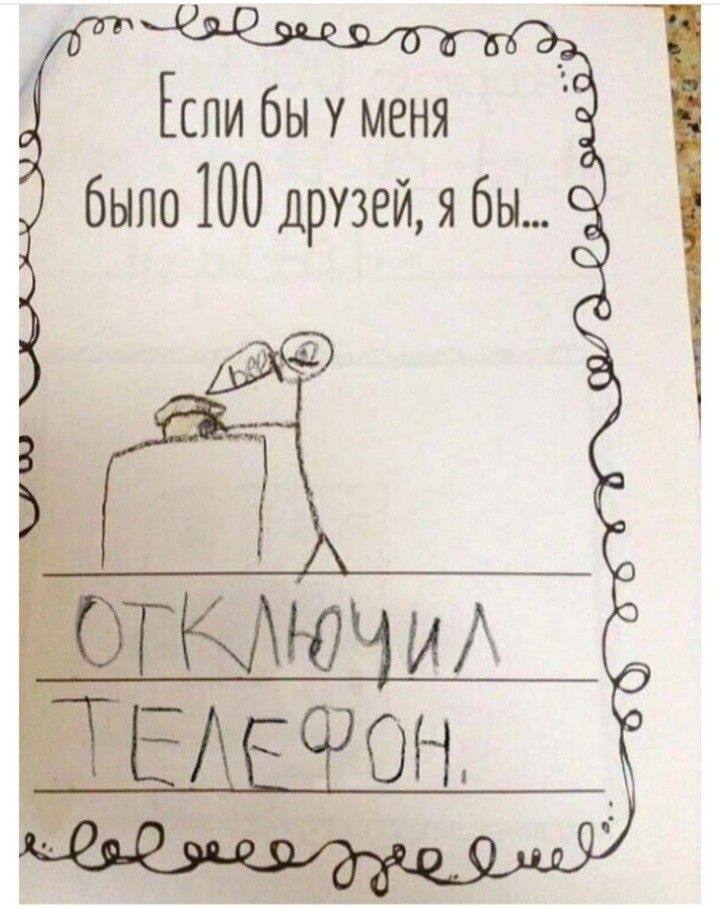 Если бы у меня
было 100 друзей, я бы...
ОТКЛЮЧИЛ
ТЕЛЕФОН.